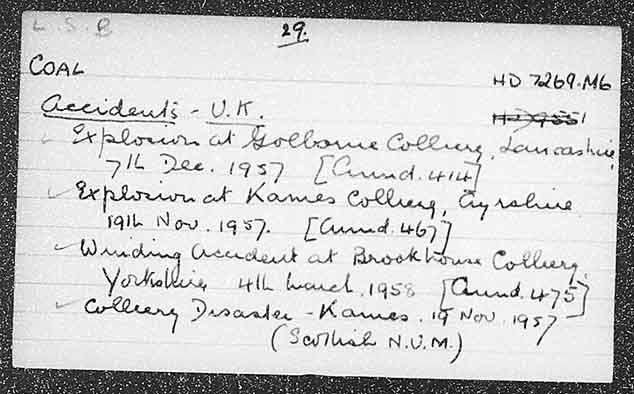 L. S. B
29.
COAL
HD 7269.M6
Accidents - U.K.
HD 9551
Explosion at Golborne Colliery, Lancashire,
7th Dec. 1957 [Cmnd. 414]
Explosion at Kames Colliery, Ayrshire
19th Nov. 1957. [Cmnd. 467]
Winding Accident at Brookhouse Colliery,
Yorkshire, 4th March, 1958 [Cmnd. 475]
Colliery Disaster - Kames. 19 Nov. 1957
(Scottish N.U.M.)